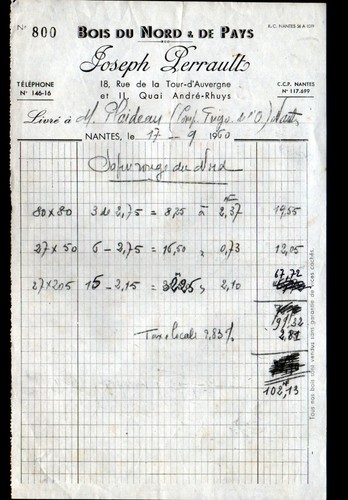 N° 800
BOIS DU NORD & DE PAYS
R.C. NANTES 36 A
Joseph Perrault
TÉLÉPHONE
N° 146-16
18, Rue de la Tour-d'Auvergne
et 11, Quai André-Rhuys
C.C.P. NANTES
N° 117.699
Livré à M. Plaideau
NANTES, le 17 - 9 1960
Sapin rouge du Nord
80 x 80 3 de 2,75 = 8,25 à 2,37 19,55
27 x 50 6 - 2,75 = 16,50 " 0,73 12,05
67,72
27 x 205 15 - 2,15 = 32,25 " 2,10
99,32
Taxe locale 2,83 % 2,81
102,13
Tous nos bois sont vendus sans garantie de vices cachés.